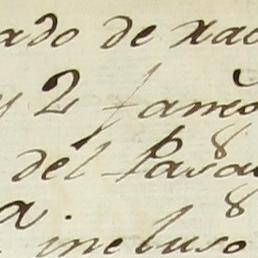 ado de xac
y 2 fane
del Pasa
a
incluso